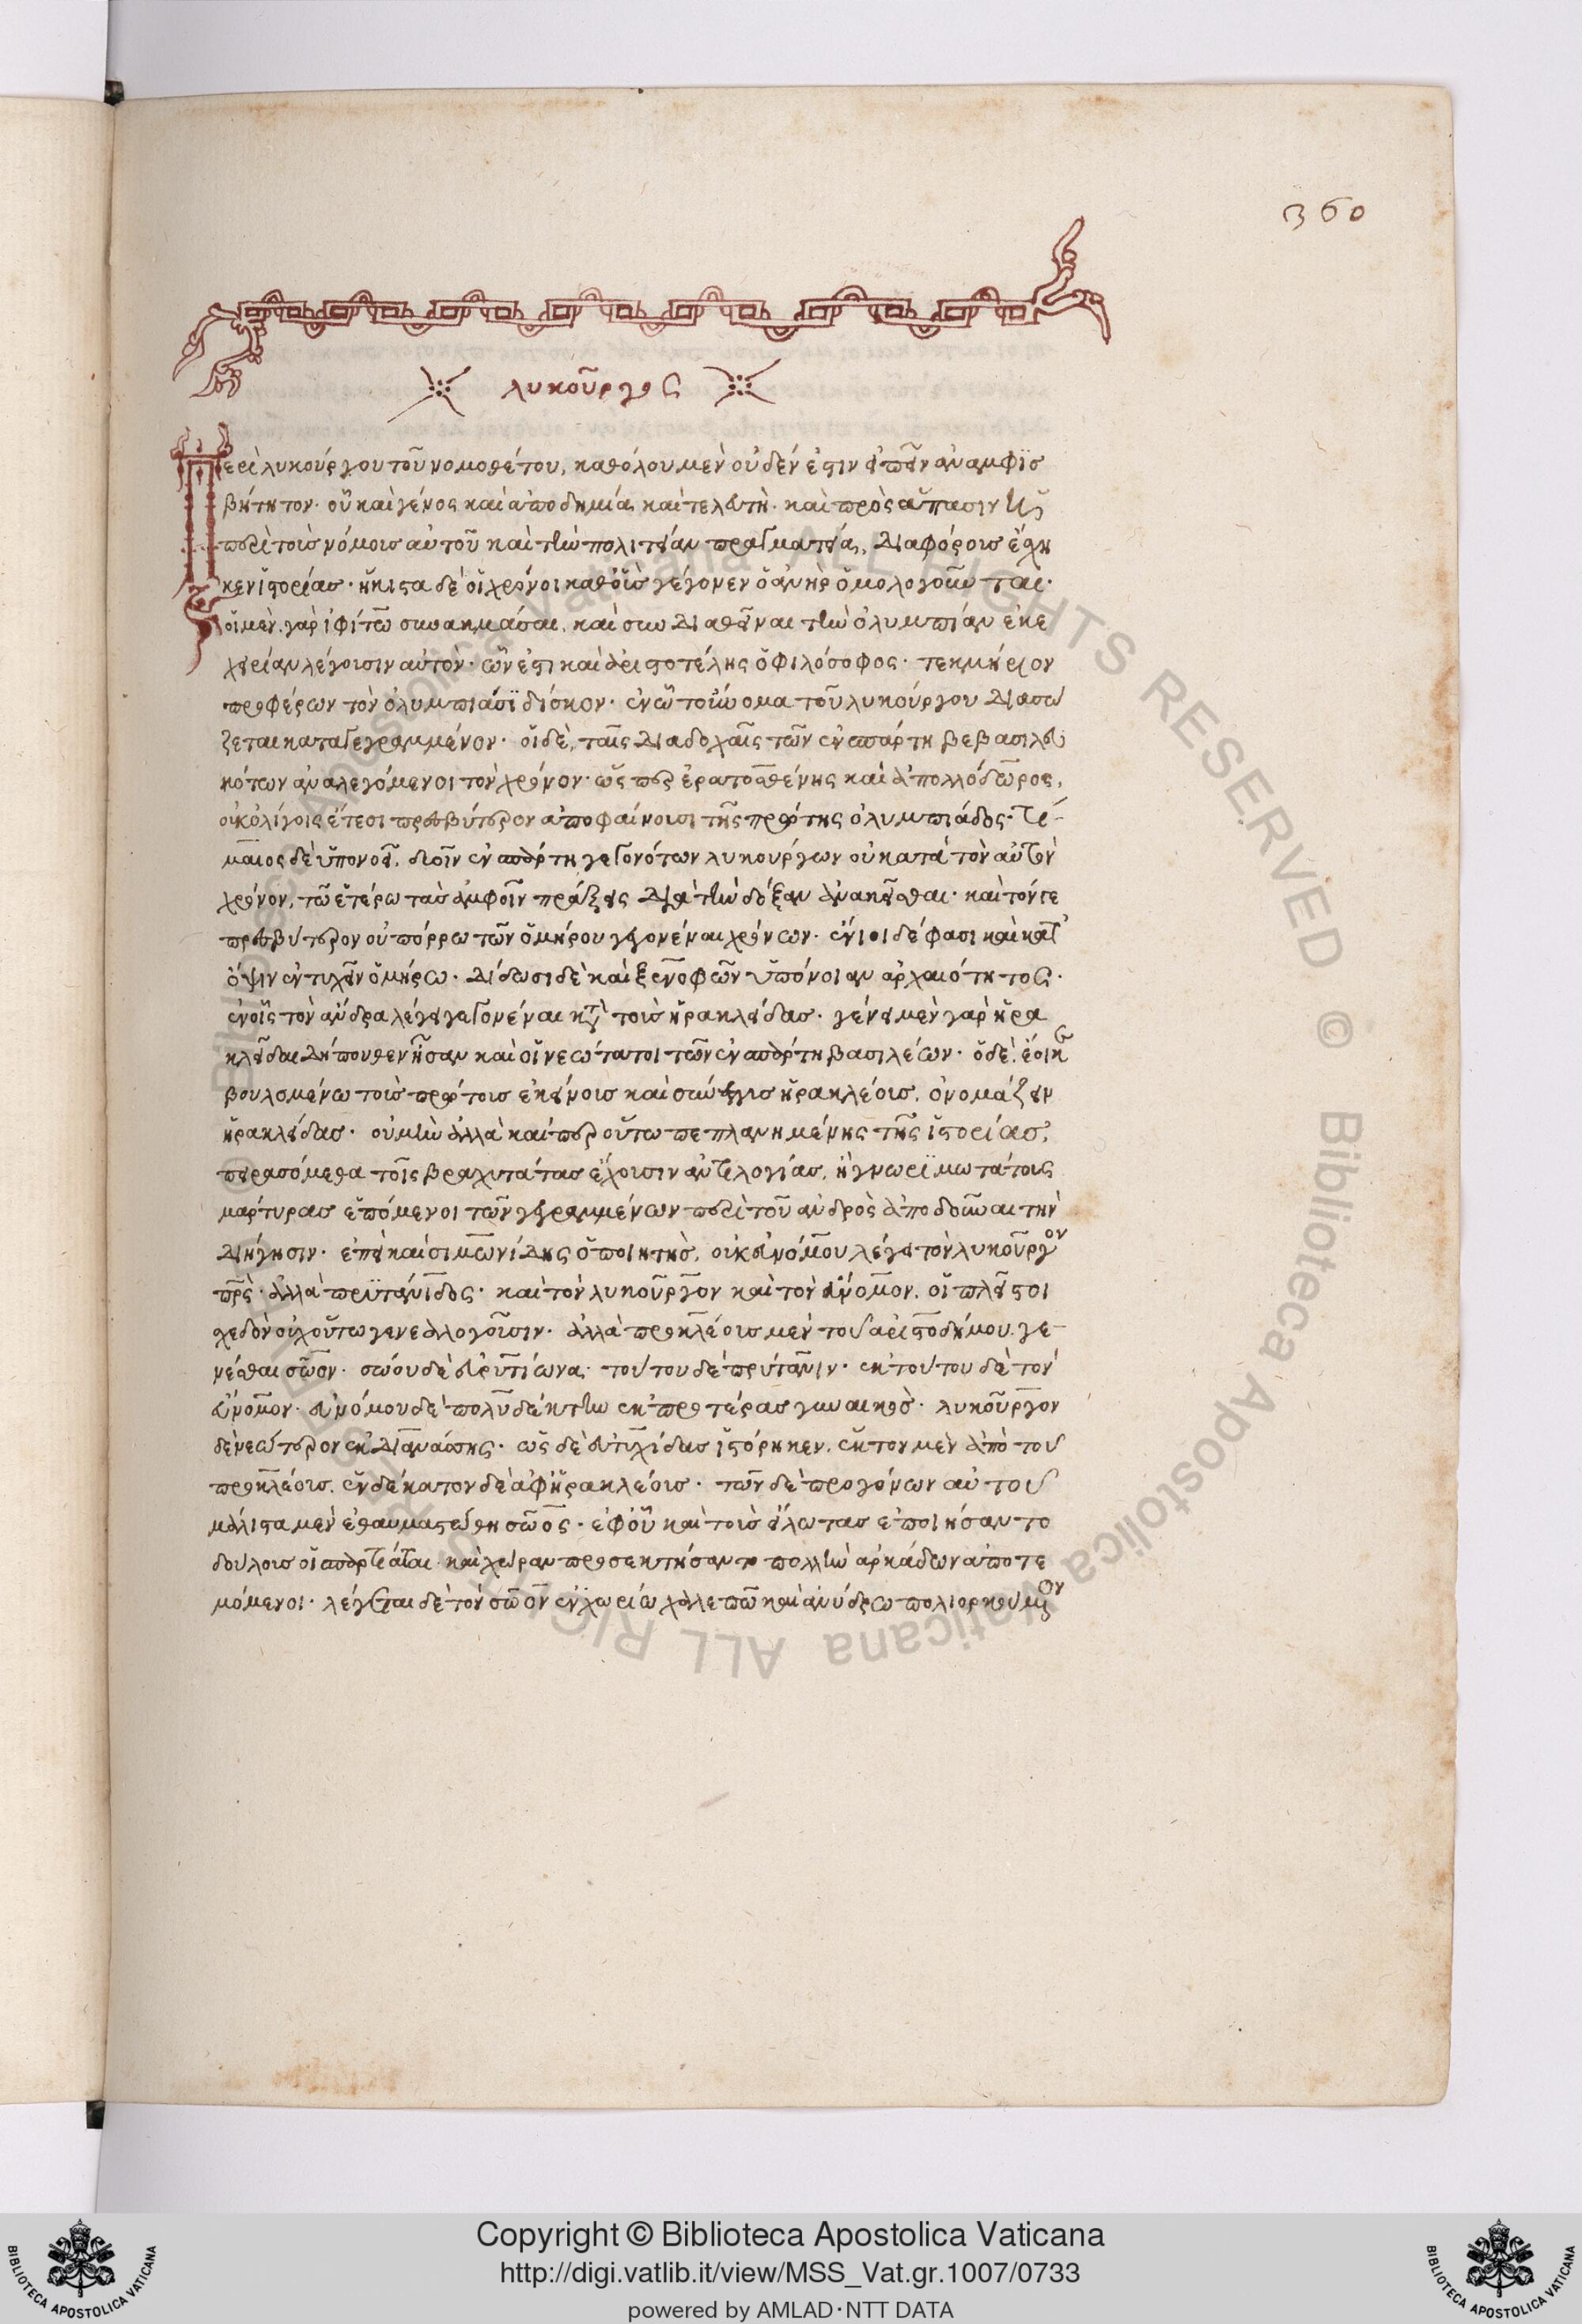 360
λυκοῦργος
Περὶ λυκούργου τοῦ νομοθέτου, καθόλου μὲν οὐδέν ἐστιν εἰπεῖν ἀναμφϊσ
βήτητον· οὗ καὶ γένος καὶ ἀποδημία καὶ τελευτὴ· καὶ πρὸς ἅπασιν ἡ
περὶ τοὺς νόμους αὐτοῦ καὶ τὴν πολιτείαν πραγματεία, διαφόρους ἔσχη
κεν ἱστορίας· ἥκιστα δὲ οἱ χρόνοι καθ' οὓς γέγονεν ὁ ἀνὴρ ὁμολογοῦνται·
οἱ μὲν γὰρ ἰφίτω συνακμάσαι, καὶ συνδιαθεῖναι τὴν ὀλυμπίαν ἐκε
χειρίαν λέγουσιν αὐτὸν· ὧν ἐστι καὶ ἀριστοτέλης ὁ φιλόσοφος· τεκμήριον
προφέρων τὸν ὀλυμπιάσϊ δίσκον· ἐν ᾧ τοὔνομα τοῦ λυκούργου διασώ
ζεται καταγεγραμμένον· οἱ δὲ, ταῖς διαδοχαῖς τῶν ἐν σπάρτη βεβασιλευ
κότων ἀναλεγόμενοι τὸν χρόνον· ὥσπερ ἐρατοσθένης καὶ ἀπολλόδωρος,
οὐκ ὀλίγοις ἔτεσι πρεσβύτερον ἀποφαίνουσι τῆς πρώτης ὀλυμπιάδος· τί
μαιος δὲ ὑπονοεῖ, δυοῖν ἐν σπάρτη γεγονότων λυκούργων οὐ κατὰ τὸν αὐτὸν
χρόνον, τῶ ἑτέρω τὰς ἀμφοῖν πράξεις διὰ τὴν δόξαν ἀνακεῖσθαι· καὶ τόν γε
πρεσβύτερον οὐ πόρρω τῶν ὁμήρου γεγονέναι χρόνων· ἔνιοι δέ φασι καὶ κατ'
ὄψιν ἐντυχεῖν ὁμήρω· δίδωσι δὲ καὶ ξενοφῶν ὑπόνοιαν ἀρχαιότητος·
ἐν οἷς τὸν ἄνδρα λέγει γεγονέναι κατὰ τοὺς ἡρακλείδας· γένει μὲν γὰρ ἡρα
κλεῖδαι δήπουθεν ἦσαν καὶ οἱ νεώτατοι τῶν ἐν σπάρτη βασιλέων· ὁ δὲ, ἔοικε
βουλομένω τοὺς πρώτους ἐκείνους καὶ σύνεγγυς ἡρακλέους, ὀνομάζειν
ἡρακλείδας· οὐ μὴν ἀλλὰ καίπερ οὕτω πεπλανημένης τῆς ἱστορίας,
πειρασόμεθα τοῖς βραχυτάτας ἔχουσιν ἀντιλογίας, ἢ γνωρϊμωτάτους
μάρτυρας ἑπόμενοι τῶν γεγραμμένων περὶ τοῦ ἀνδρὸς ἀποδοῦναι τὴν
διήγησιν· ἐπεὶ καὶ σιμωνίδης ὁ ποιητὴς, οὐκ εὐνόμου λέγει τὸν λυκοῦργον
πατρὸς· ἀλλὰ πρϋτάνιδος· καὶ τὸν λυκοῦργον καὶ τὸν εὔνομον. οἱ πλεῖστοι
σχεδὸν οὐχ οὕτω γενεαλογοῦσιν· ἀλλὰ προκλέους μὲν τοῦ ἀριστοδήμου γε
νέσθαι σῶον· σώου δὲ εὐρυτίωνα· τούτου δὲ πρύτανιν· ἐκ τούτου δὲ τὸν
εὔνομον· εὐνόμου δὲ πολυδέκτην ἐκ προτέρας γυναικὸς· λυκοῦργον
δὲ νεώτερον ἐκ διανάσσης· ὡς δὲ εὐτυχίδας ἱστόρηκεν, ἕκτον μὲν ἀπὸ τοῦ
προκλέους, ἑνδέκατον δὲ ἀφ' ἡρακλέους· τῶν δὲ προγόνων αὐτοῦ
μάλιστα μὲν ἐθαυμαστώθη σῶος· ἐφ' οὗ καὶ τοὺς εἵλωτας ἐποιήσαντο
δούλους οἱ σπαρτιᾶται· καὶ χώραν προσεκτήσαντο πολλὴν ἀρκάδων ἀποτε
μόμενοι· λέγεται δὲ τὸν σῶον ἐν χωρίω χαλεπῶ καὶ ἀνύδρω πολιορκούμενον
Copyright © Biblioteca Apostolica Vaticana
http://digi.vatlib.it/view/MSS_Vat.gr.1007/0733
powered by AMLAD·NTT DATA